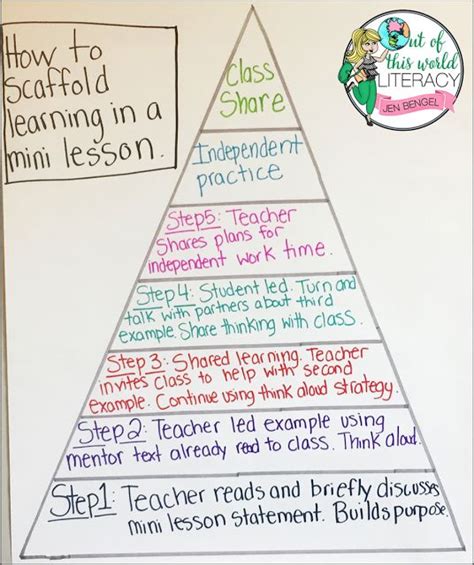 How to
Scaffold
learning in a
mini lesson.
Out of
this world
LITERACY
JEN BENGEL
Class
Share
Independent
practice
Step5: Teacher
Shares plans for
independent work time.
Step 4: Student led. Turn and
talk with partners about third
example. Share thinking with class.
Step 3: Shared learning. Teacher
invites class to help with second
example. Continue using think aloud strategy.
Step2: Teacher led example using
mentor text already read to class. Think aloud.
Step1: Teacher reads and briefly discusses
mini lesson statement. Builds purpose.